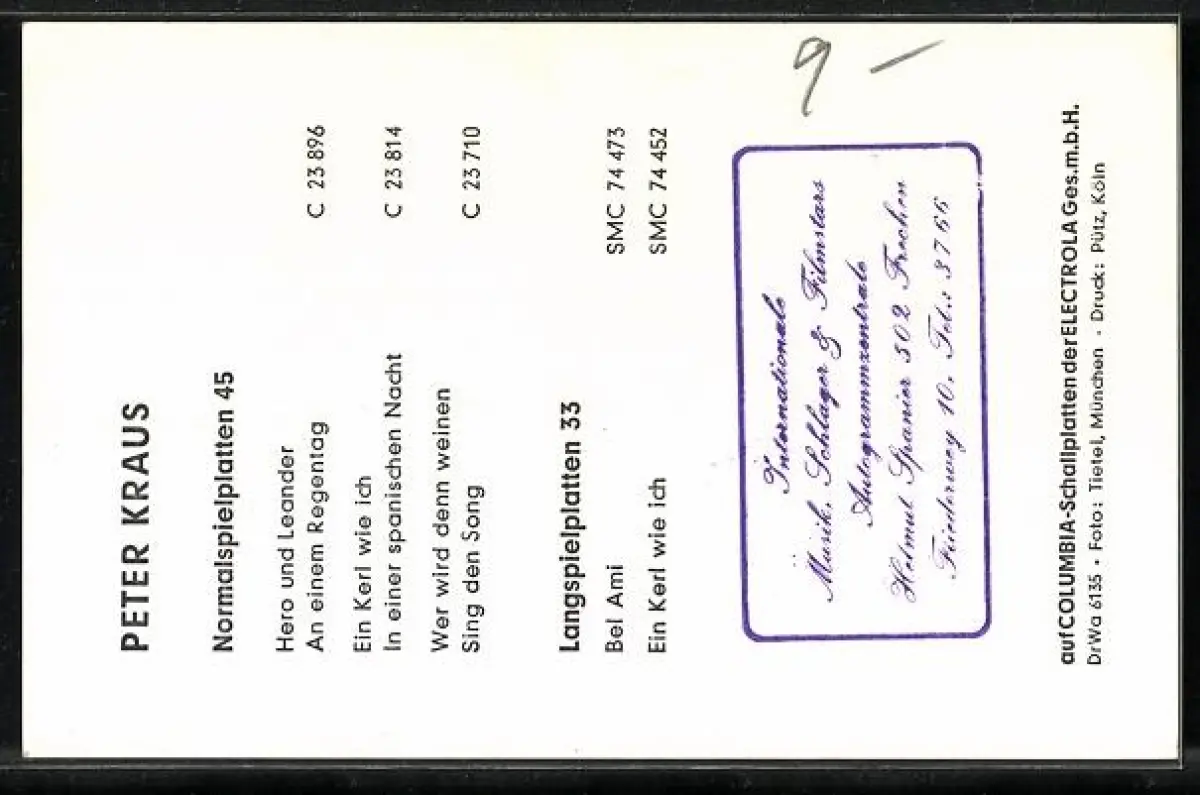 9 –
PETER KRAUS
Normalspielplatten 45
Hero und Leander
An einem Regentag C 23 896
Ein Kerl wie ich
In einer spanischen Nacht C 23 814
Wer wird denn weinen
Sing den Song C 23 710
Langspielplatten 33
Bel Ami SMC 74 473
Ein Kerl wie ich SMC 74 452
Internationale
Musik, Schlager & Filmstars
Autogrammzentrale
Helmut Spanier 502 Frechen
10, Tel.: 3766
auf COLUMBIA-Schallplatten der ELECTROLA Ges.m.b.H.
DrWa 6135 • Foto: Tietel, München • Druck: Pütz, Köln